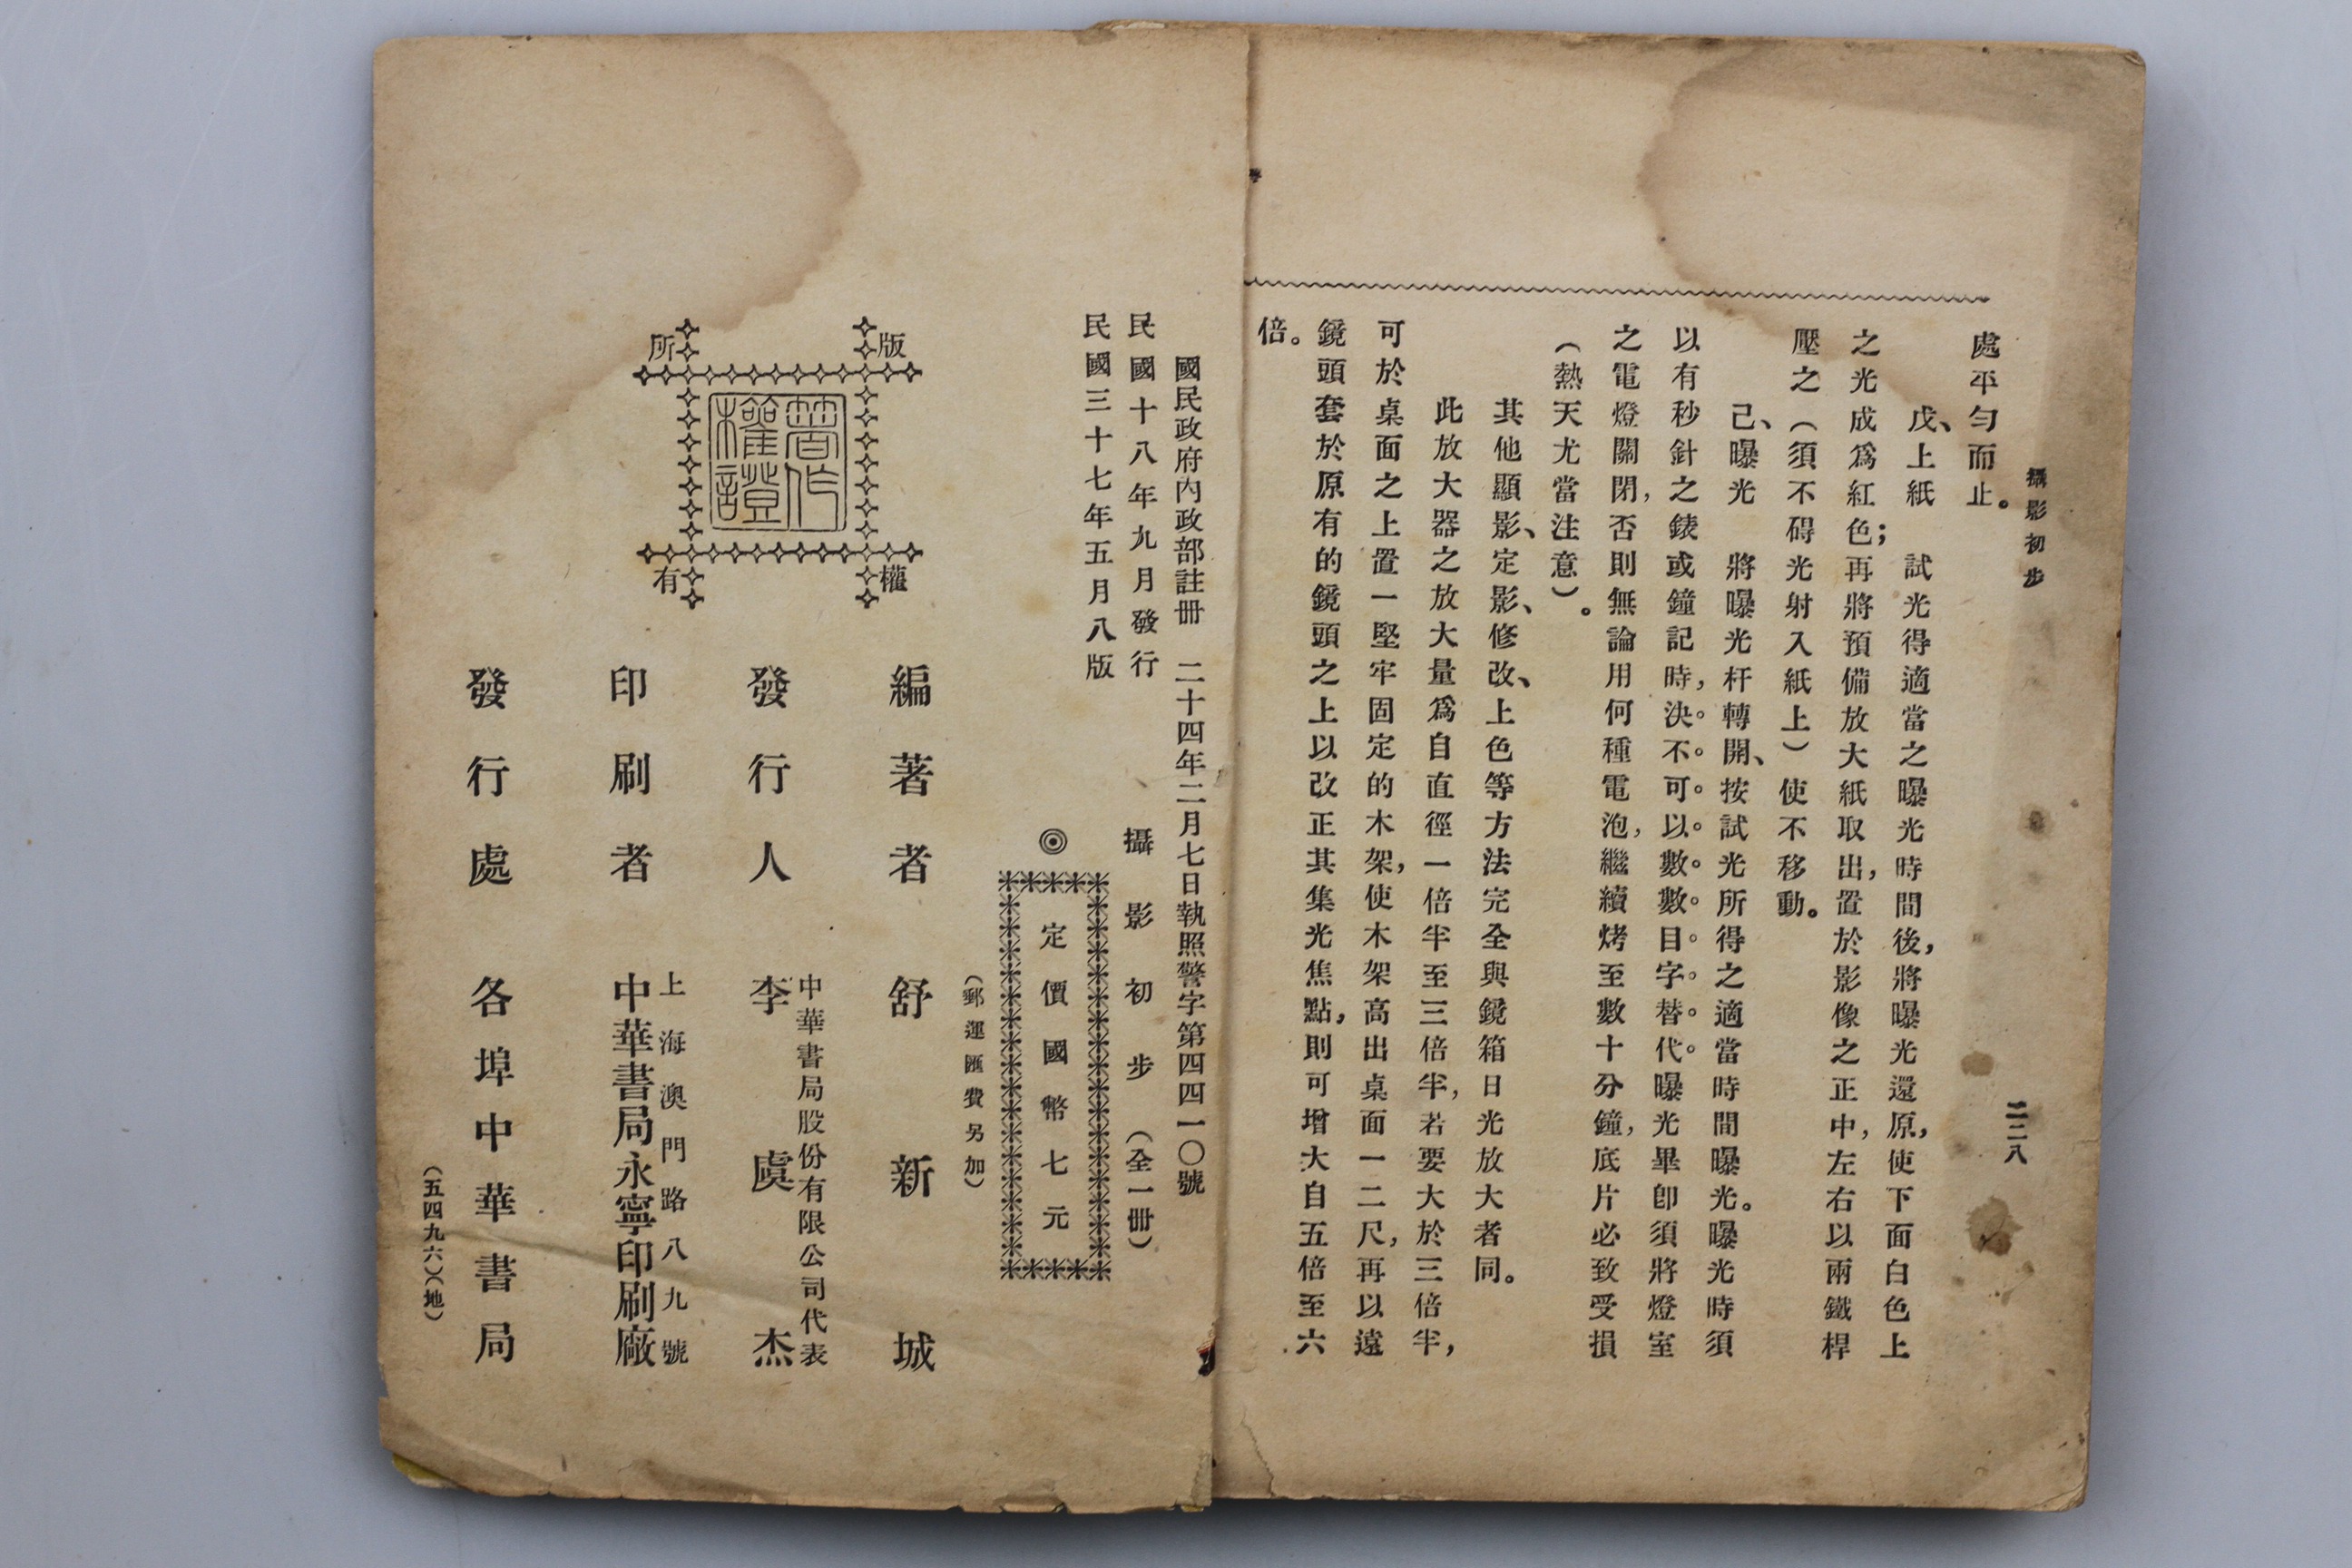 攝影初步
二二八
處平勻而止。
戊、上紙　試光得適當之曝光時間後，將曝光還原，使下面白色上
之光成爲紅色；再將預備放大紙取出，置於影像之正中，左右以兩鐵桿
壓之（須不碍光射入紙上）使不移動。
己、曝光　將曝光杆轉開、按試光所得之適當時間曝光。曝光時須
以有秒針之錶或鐘記時，決不可以數數目字替代。曝光畢卽須將燈室
之電燈關閉，否則無論用何種電泡，繼續烤至數十分鐘，底片必致受損
（熱天尤當注意）。
其他顯影、定影、修改、上色等方法完全與鏡箱日光放大者同。
此放大器之放大量爲自直徑一倍半至三倍半，若要大於三倍半，
可於桌面之上置一堅牢固定的木架，使木架高出桌面一二尺，再以遠
鏡頭套於原有的鏡頭之上以改正其集光焦點，則可增大自五倍至六
倍。
國民政府內政部註冊　二十四年二月七日執照警字第四四一〇號
民國十八年九月發行
民國三十七年五月八版
攝影初步（全一冊）
定價國幣七元
（郵運匯費另加）
版權所有
著作權證
編著者　舒新城
發行人　中華書局股份有限公司代表
李虞杰
印刷者　上海澳門路八九號
中華書局永寧印刷廠
發行處　各埠中華書局
（五四九六）（地）